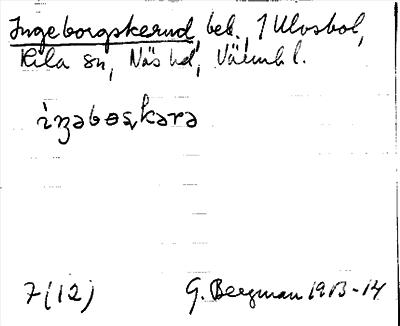 Ingeborgskerud, beb., 1 Ulvsbol,
Kila sn, Näs hd, Värml l.
7(12) G. Bergman 1913-14